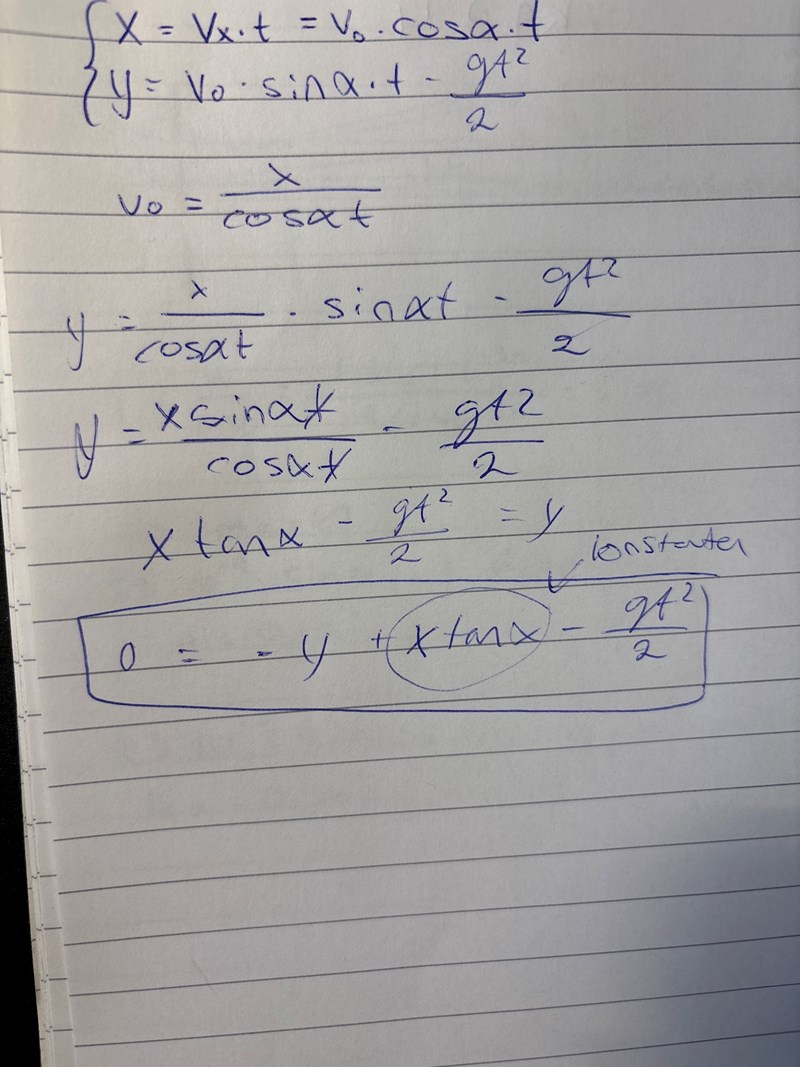 { x = Vx·t = V₀·cosα·t
y = V₀·sinα·t - gt²/2
v₀ = x/cosαt
y = x/cosαt · sinαt - gt²/2
y = xsinαt/cosαt - gt2/2
x tanα - gt²/2 = y
0 = -y + xtanα - gt²/2